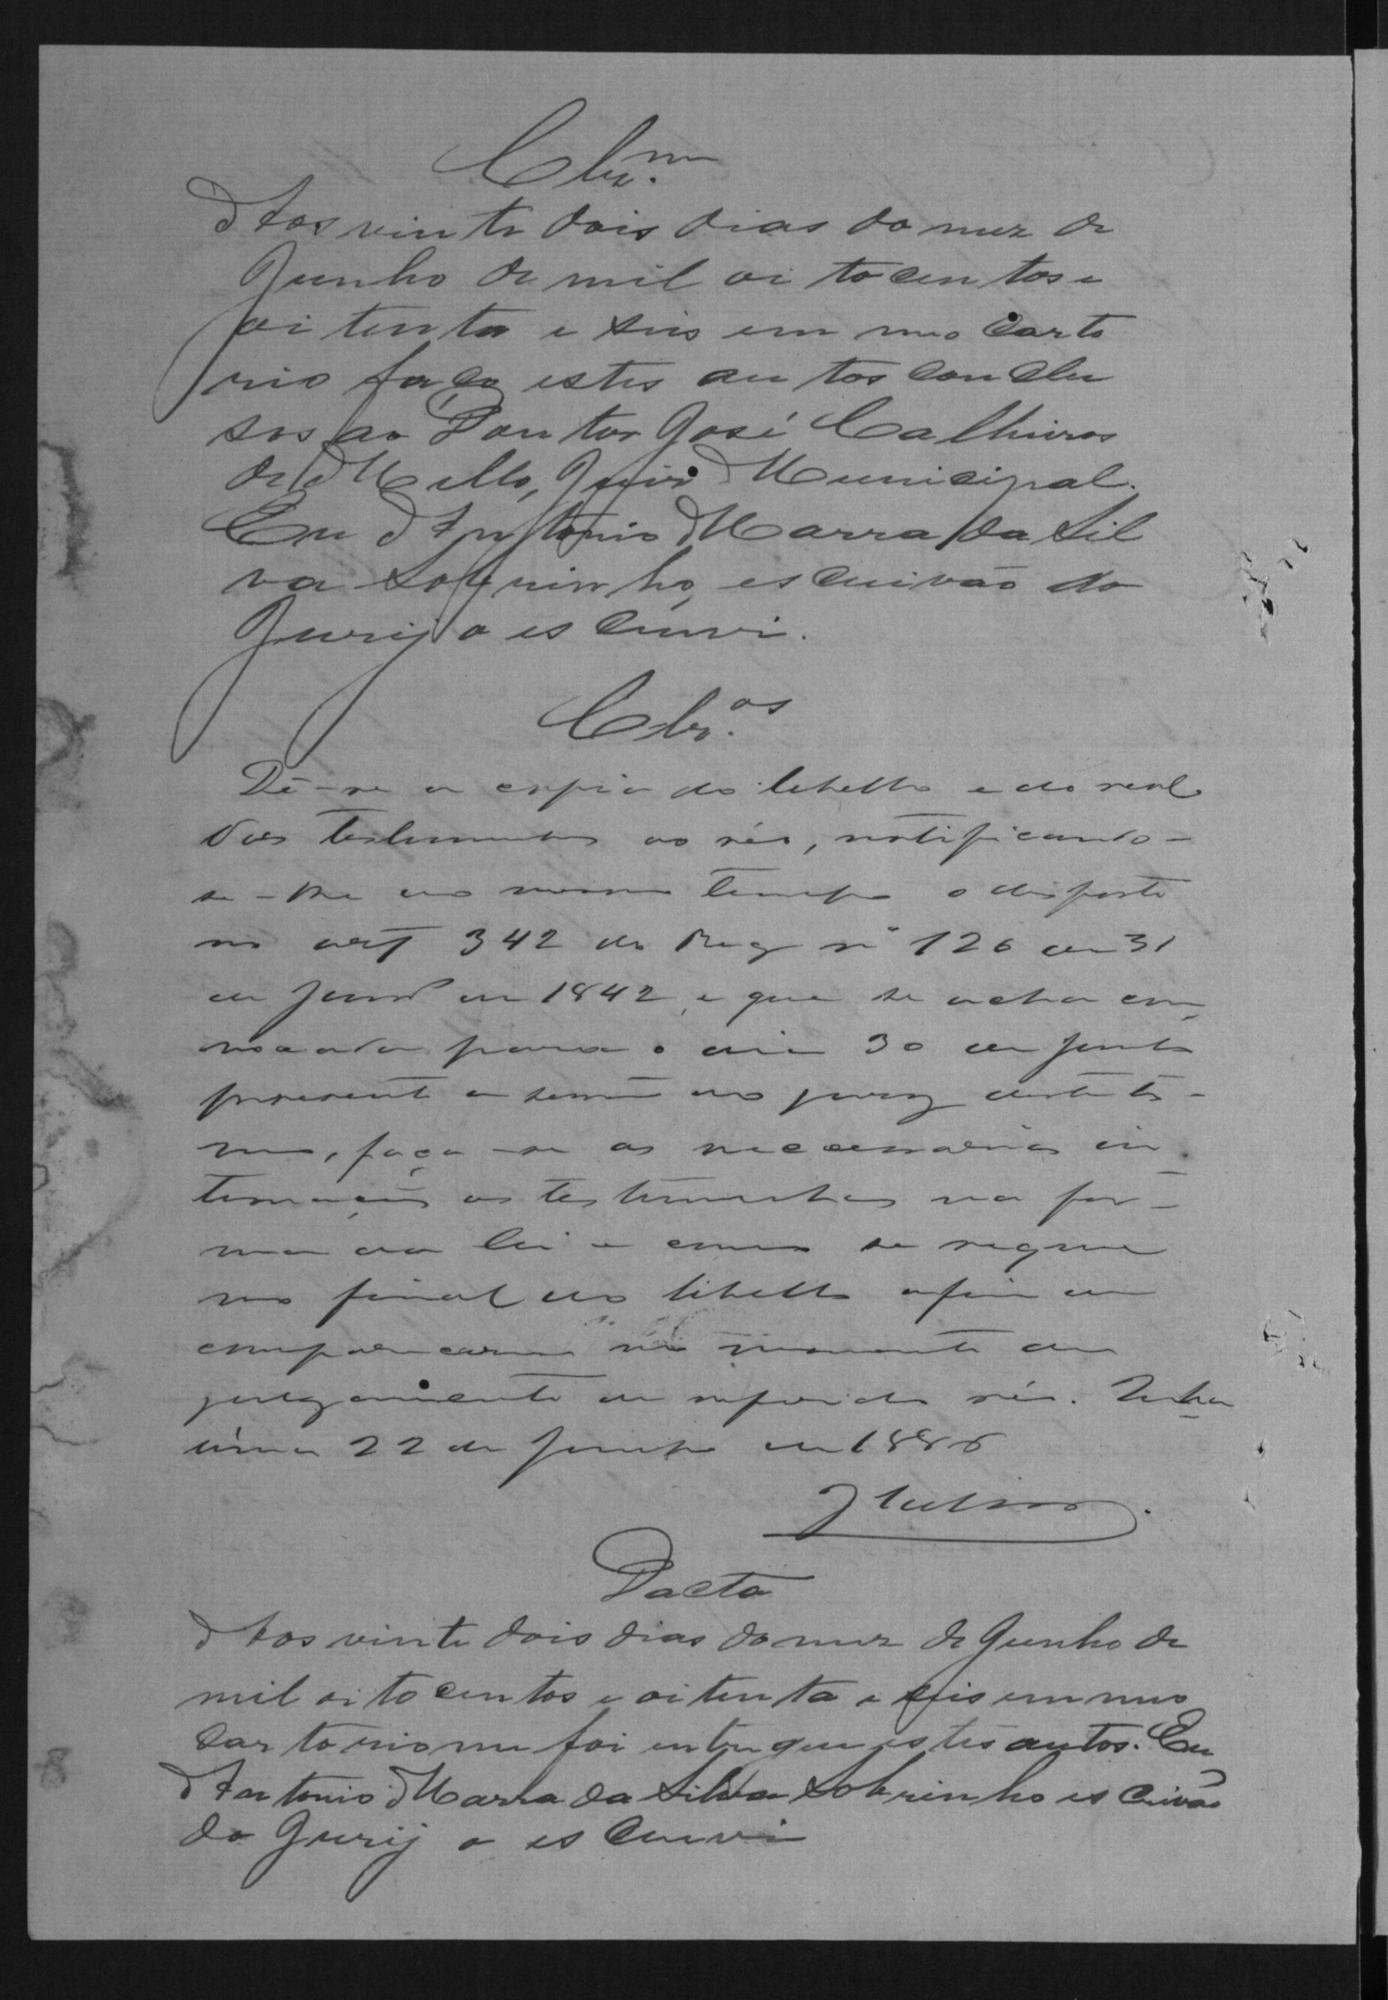 Clz.m
Aos vinte dois dias do mez de
Junho de mil oitocentos e
oitenta e seis em meo carto
rio faço estes autos conclu
sos ao Doutor José Calheiros
de Mello, Juiz Municipal.
Eu Antonio Marra da Sil
va Sobrinho, escrivão do
Jurij o escrivi.
Clz.os
Dê-se a copia do libello e do rol
das testemunhas ao réo, notificando-
se-lhe ao mesmo tempo o disposto
no art 342 do Reg nº 120 de 31
de Janrº de 1842, e que se acha con
vocada para o dia 30 de Junho
presente a sessão do jury deste ter-
mo, faça-se as necessarias in
timações as testemunhas na for-
ma da lei e como se requer
no final do libello afim de
comparecerem no momento do
julgamento do referido réo.
22 de Junho de 1886
Dacta
Aos vinte dois dias do mez de Junho de
mil oitocentos e oitenta e seis em meo
cartorio me foi entregue estes autos. Eu
Antonio Marra da Silva Sobrinho escrivão
do Jurij o escrivi